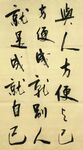 與人方便与己
方便成就別人
就是成就自己